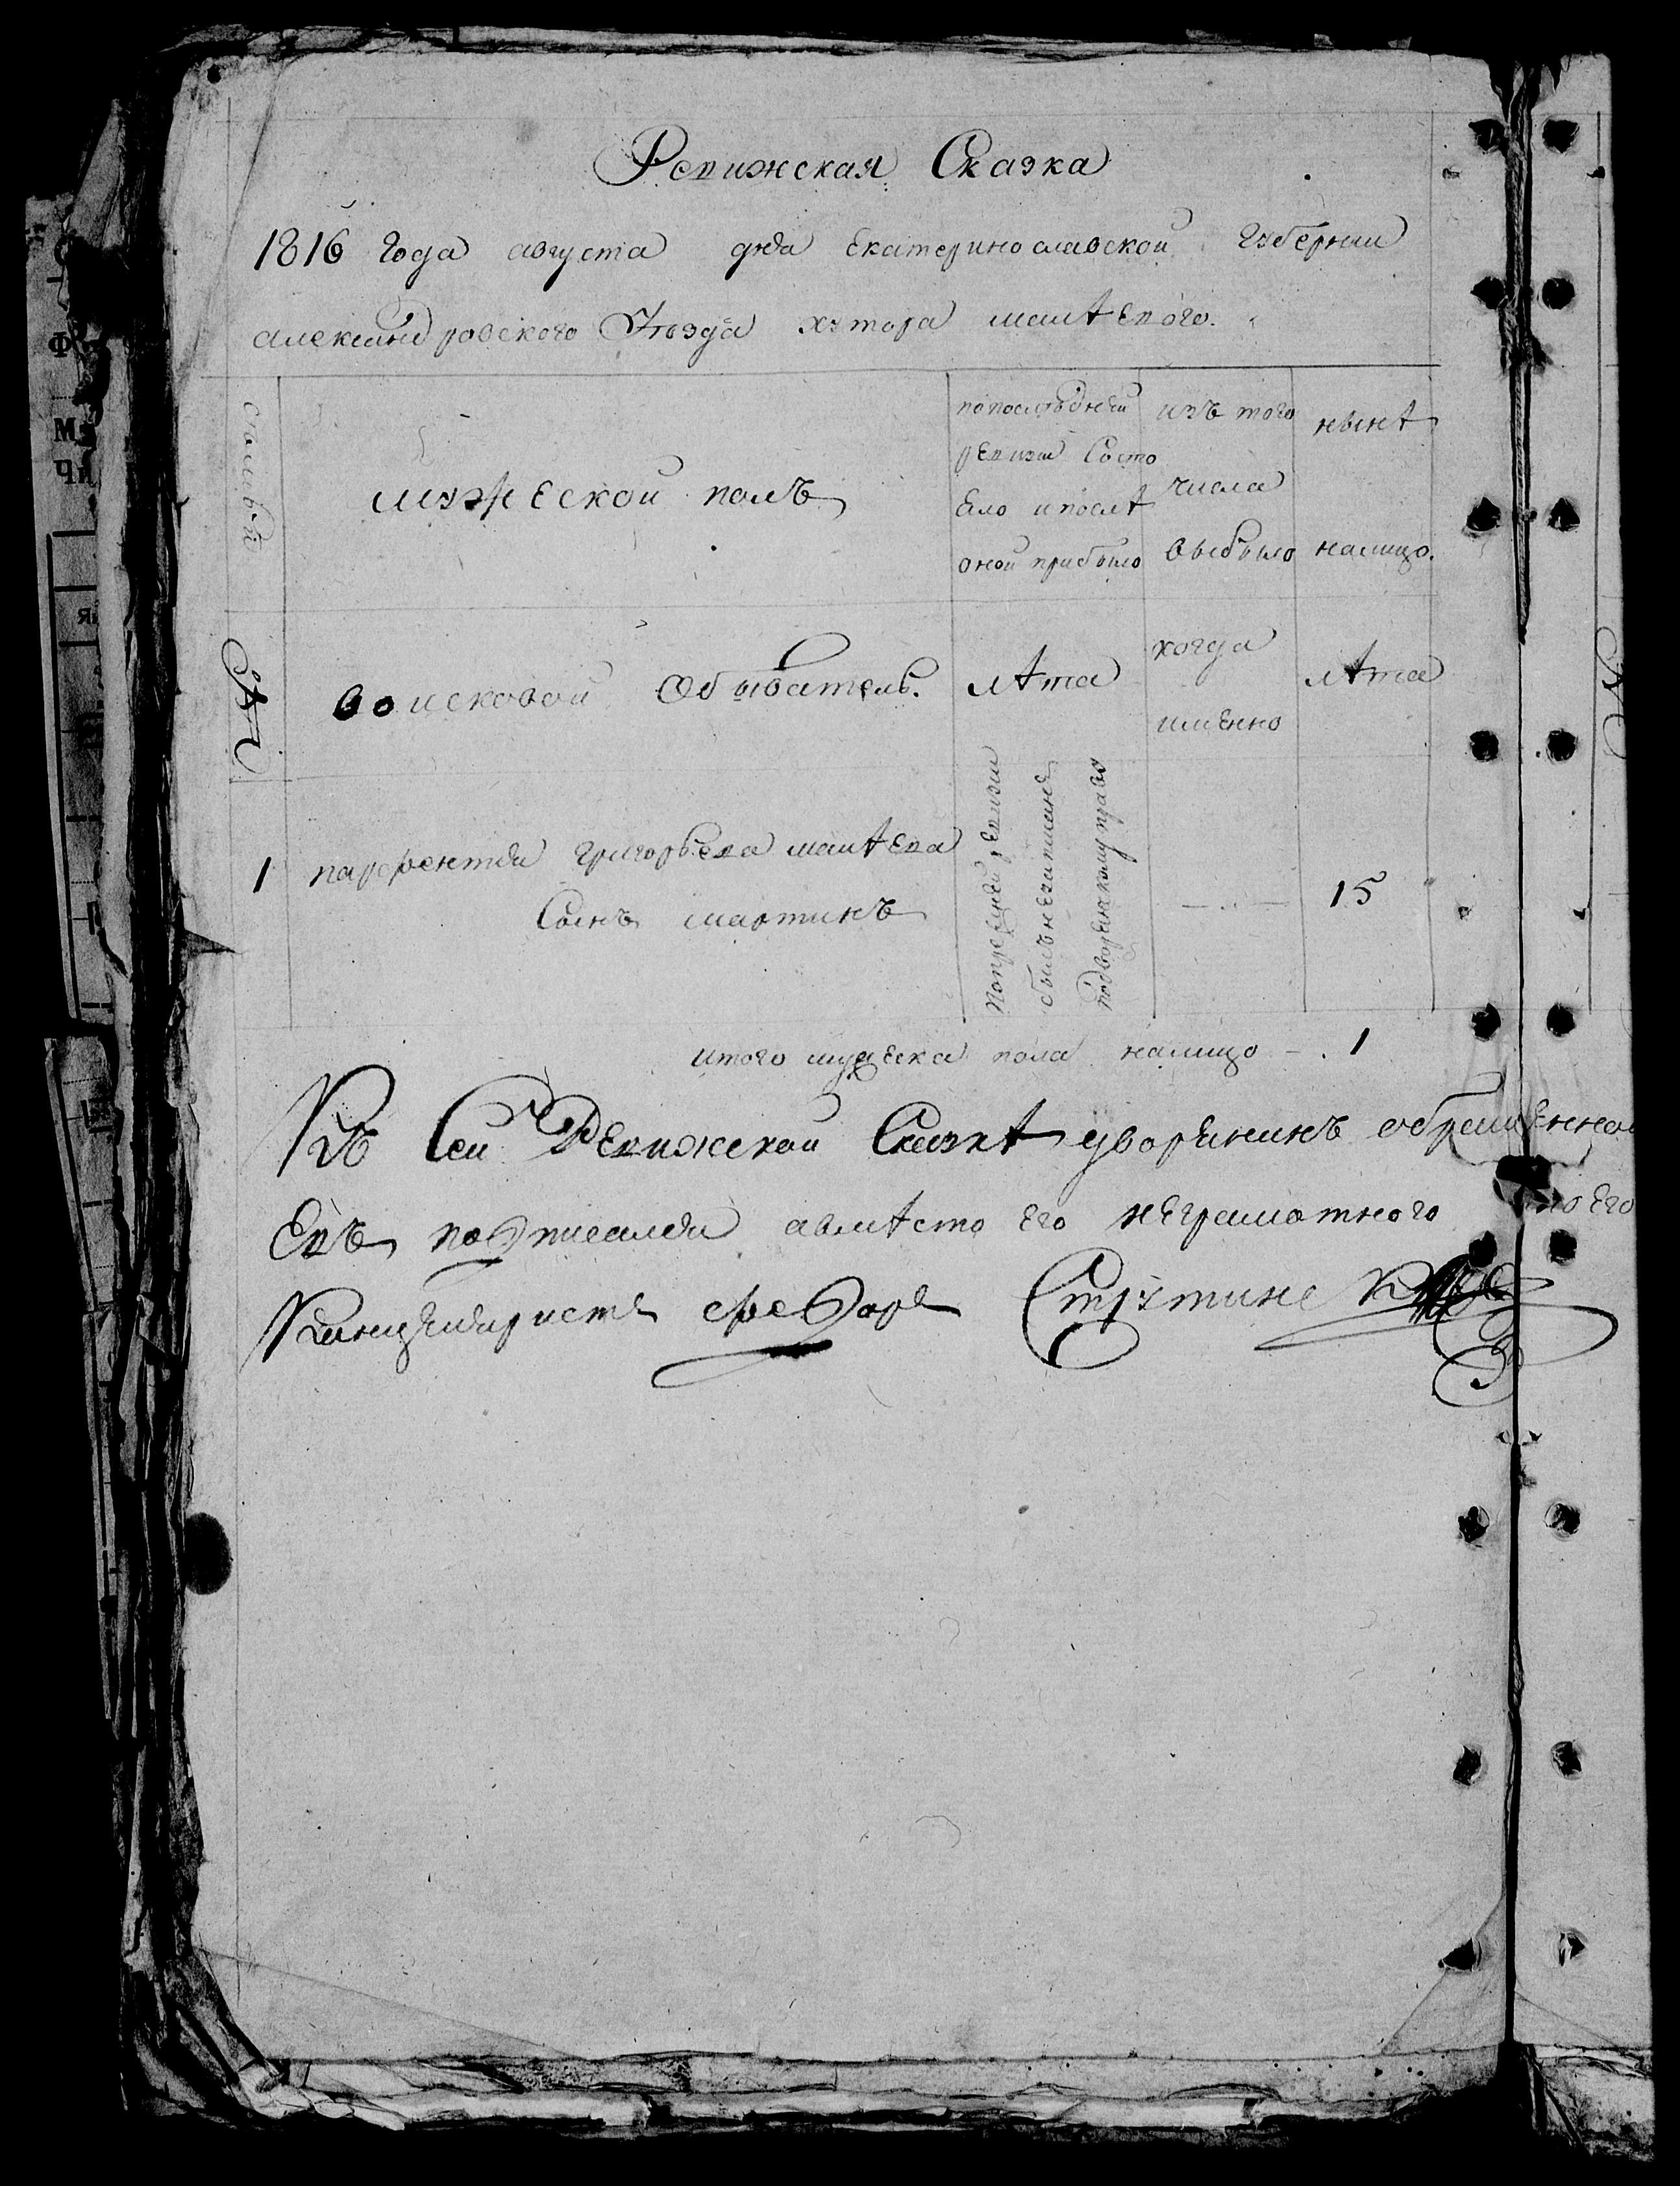 Ревижская Сказка
1816 года августа дня Екатеринославской губернии
александровского Уѣзда хутора матѣевого.
семьи
мужеской полъ
попослѣдней
ревизи Состо
Ело ипослѣ
оной прибыло
изъ того
числа
выбыло
нынѣ
налицо.
№
воисковой Обыватель.
лѣта
когда
именно
лѣта
1 парфентия григорьева матѣева
Сынъ мартинъ
Попрежней ревизии
былъ незаписанъ
подворянскому праву
15
итого мужеска пола налицо - 1
Къ Сей Ревижской Сказкѣ дворянинъ
Евъ подписался авмѣсто Его неграмотного по Его
Канцеляристъ федоръ